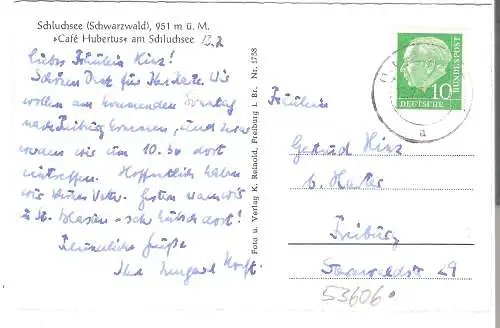 Schluchsee (Schwarzwald), 951 m ü. M.
»Café Hubertus« am Schluchsee
Liebes Fräulein Hinz!
Schönen Dank für Ihre Karte. Wir
wollen am kommenden Sonntag
nach Freiburg kommen, und zwar
werden wir um 10.30 dort
eintreffen. Hoffentlich haben
wir schönes Wetter. Gestern waren wir
in St. Blasien - sehr hübsch dort!
Freundliche Grüße
Ihre Irmgard
Foto u. Verlag K. Reinold, Freiburg i. Br. Nr. 1758
10
DEUTSCHE
BUNDESPOST
a
Fräulein
Gertrud Hinz
b.
Freiburg
29
53606